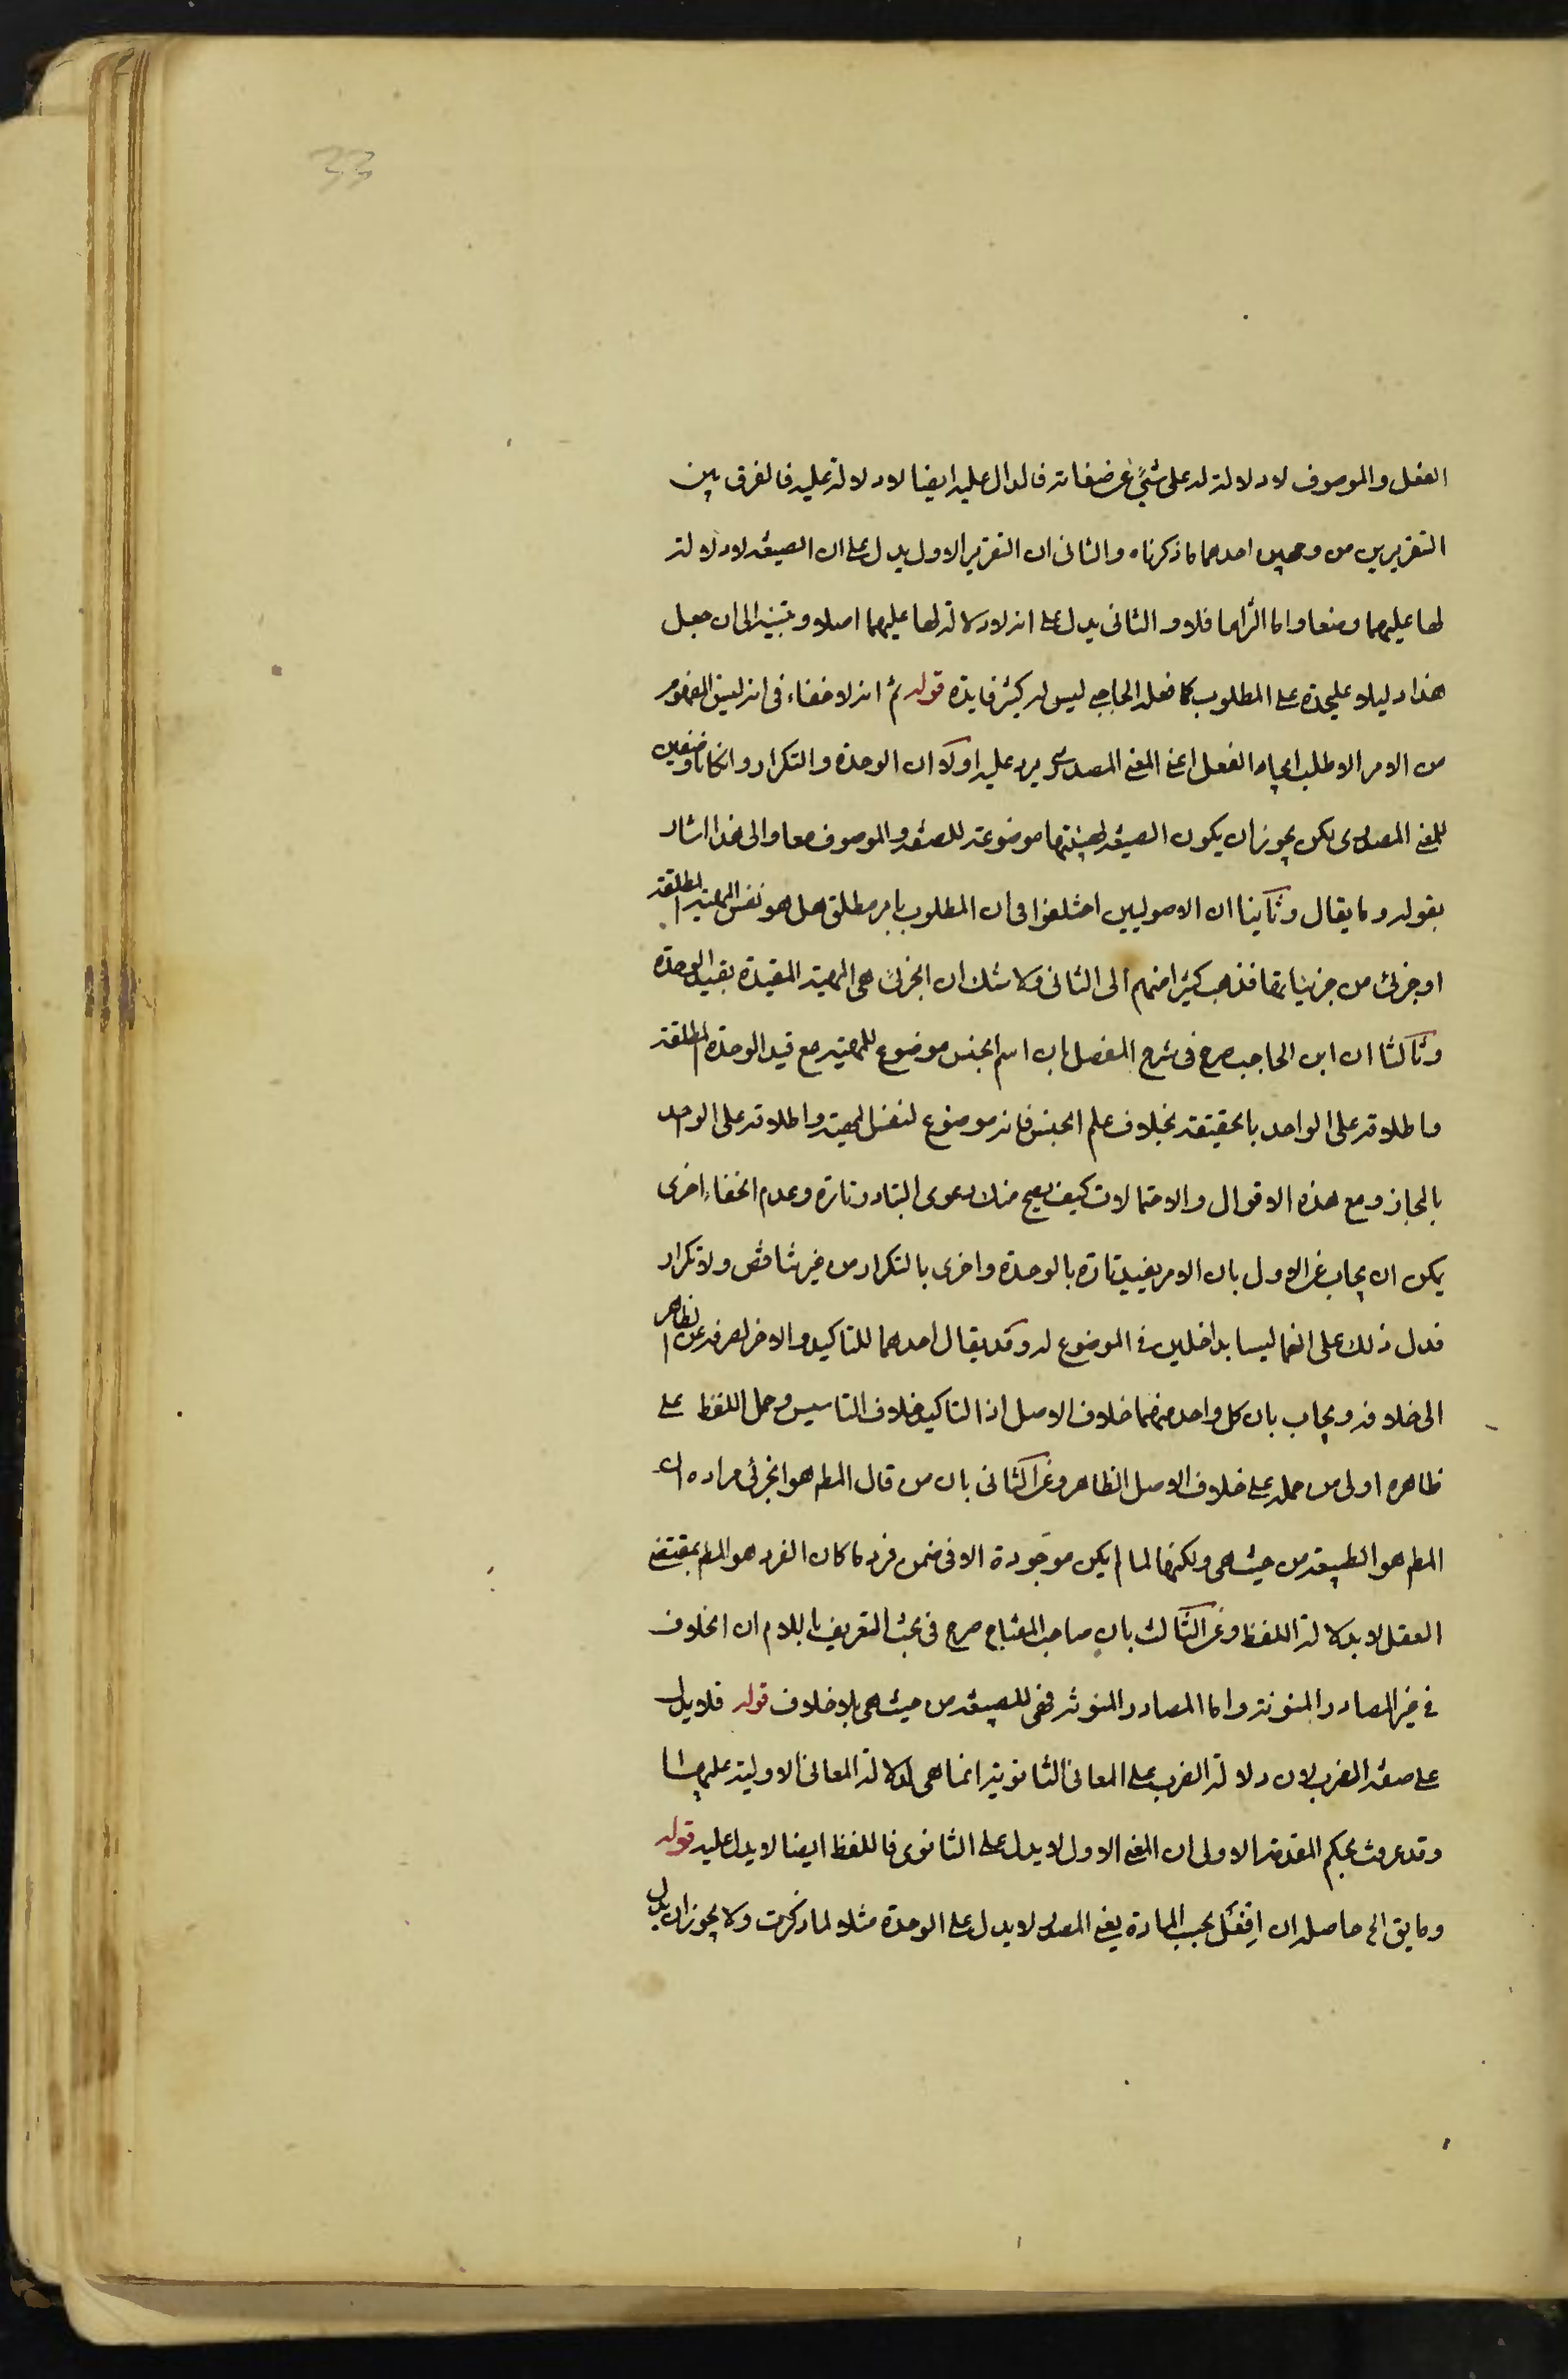 33
الفعل والموصوف لا دلالة له على شئ من صفاته فالدال عليه ايضا لا دلالة عليه فالفرق بين
التقريرين من وجهين احدهما ما ذكرناه والثانى ان التقرير الاول يدل على ان الصيغة لا دلالة
لها عليهما وضعا واما التزاما فلا والثانى يدل على انه لا دلالة لها عليهما اصلا و الى ان جعل
هذا دليلا عليحدة على المطلوب كما فعله الحاجبى ليس له كثير فايدة قوله ثم انه لا خفاء فى انه ليس المفهوم
من الامر الا طلب ايجاد الفعل اعنى المعنى المصدرى يرد عليه اولا ان الوحدة والتكرار وان كانا وصفين
للمعنى المصدرى لكن يجوز ان يكون الصيغة لهيئتها موضوعة للصفة والموصوف معا والى هذا اشار
بقوله وما يقال وثانيا ان الاصوليين اختلفوا فى ان المطلوب بامر مطلق هل هو نفس المهية المطلقة
او جزئى من جزئياتها فذهب كثير منهم الى الثانى ولا شك ان الجزئى هى المهية المقيدة بقيد الوحدة
وثالثا ان ابن الحاجب صرح فى شرح المفصل بان اسم الجنس موضوع للمهية مع قيد الوحدة المطلقة
فاطلاقه على الواحد بالحقيقة بخلاف علم الجنس فانه موضوع لنفس المهية واطلاقه على الواحد
بالمجاز ومع هذه الاقوال والاحتمالات كيف يصح منك دعوى التبادر تارة وعدم الخفاء اخرى
يمكن ان يجاب عن الاول بان الامر يقيد تارة بالوحدة واخرى بالتكرار من غير تناقض ولا تكرار
فدل ذلك على انهما ليسا بداخلين فى الموضوع له وقد يقال احدهما للتاكيد والاخر لصرفه عن الظاهر
الى خلافه ويجاب بان كل واحد منهما خلاف الاصل اذ التاكيد خلاف التاسيس وحمل اللفظ على
ظاهره اولى من حمله على خلاف الاصل الظاهر وعن الثانى بان من قال المط هو الجزئى مراده ان
المط هو الطبيعة من حيث هى ولكنها لما لم يكن موجودة الا فى ضمن فرد ما كان الفرد هو المط بمقتضى
العقل لا بدلالة اللفظ وعن الثالث بان صاحب المفتاح صرح فى بحث التعريف باللام ان الخلاف
فى غير المصادر المنونة واما المصادر المنونة فهى للطبيعة من حيث هى بلا خلاف قوله فلا يدل
على صفة الضرب لان دلالة الضرب على المعانى الثانوية انما هى لدلالة المعانى الاولية عليها
وقد عرفت بحكم المقدمة الاولى ان المعنى الاول لا يدل على الثانوى فاللفظ ايضا لا يدل عليه قوله
وما يق الخ حاصله ان اِفْعَل بحسب المادة يعنى المصدر لا يدل على الوحدة مثلا لما ذكرت ولا يجوز ان يدل